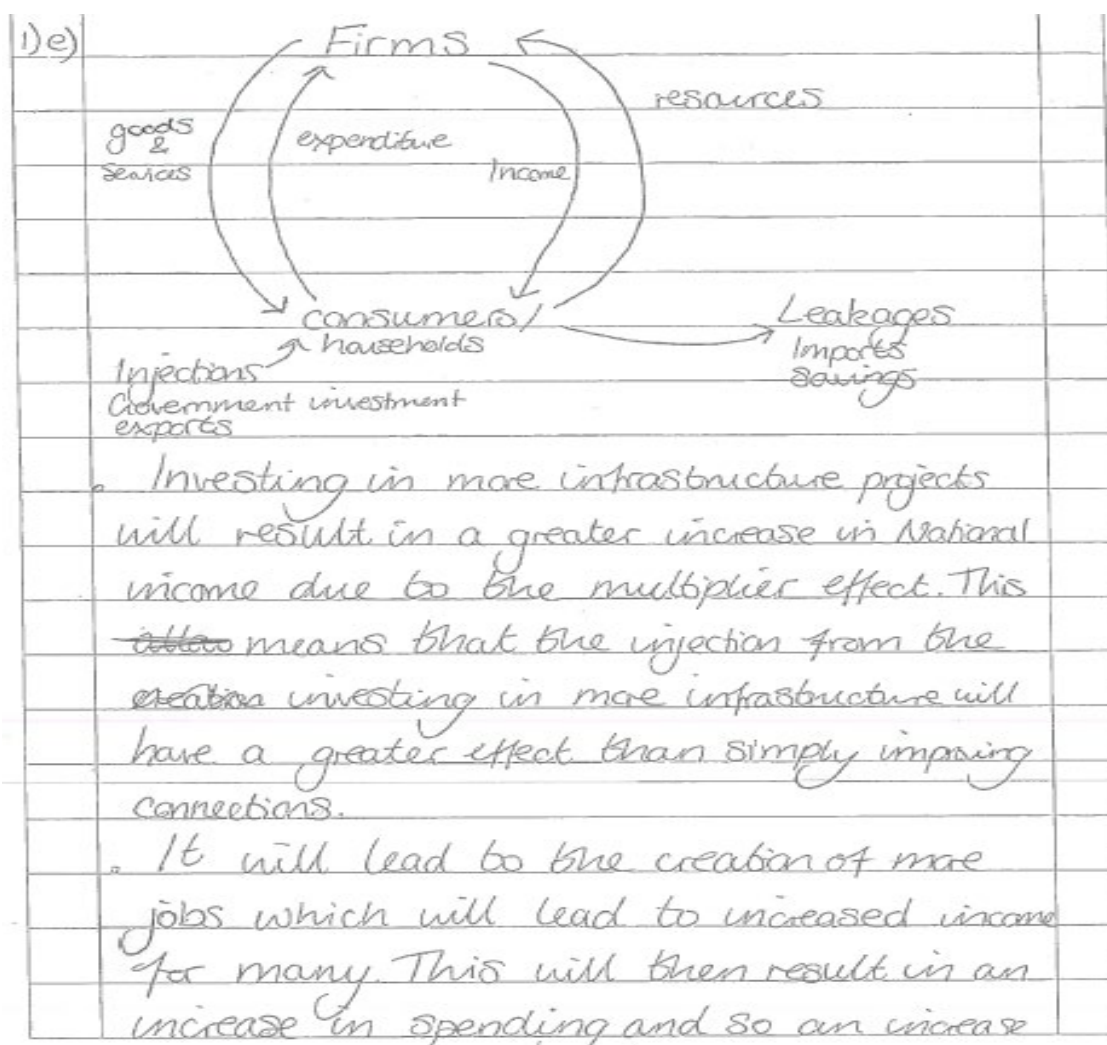 1)e)
Firms
resources
goods
&
services
expenditure
Income
consumers/
households
Leakages
Imports
Savings
Injections
Government investment
exports
. Investing in more infrastructure projects
will result in a greater increase in National
income due to the multiplier effect. This
means that the injection from the
creation investing in more infrastructure will
have a greater effect than simply improving
connections.
. It will lead to the creation of more
jobs which will lead to increased income
for many. This will then result in an
increase in spending and so an increase